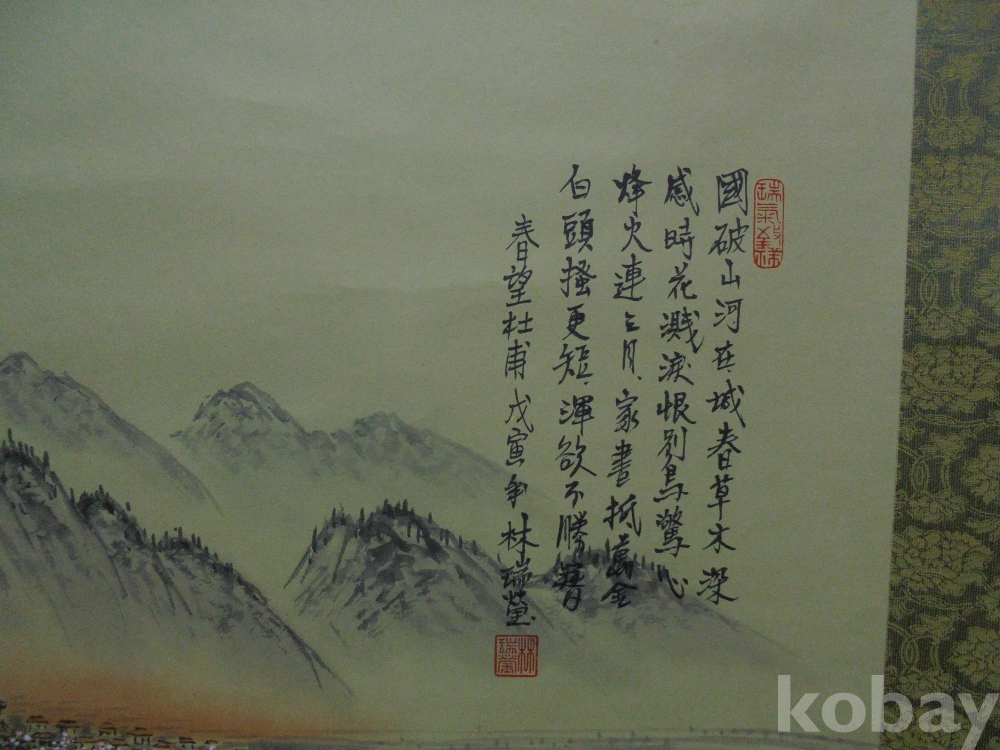 國破山河在城春草木深
感時花濺淚恨別鳥驚心
烽火連三月家書抵萬金
白頭搔更短渾欲不勝簪
春望杜甫戊寅年林瑞瑩
林瑞瑩
kobay